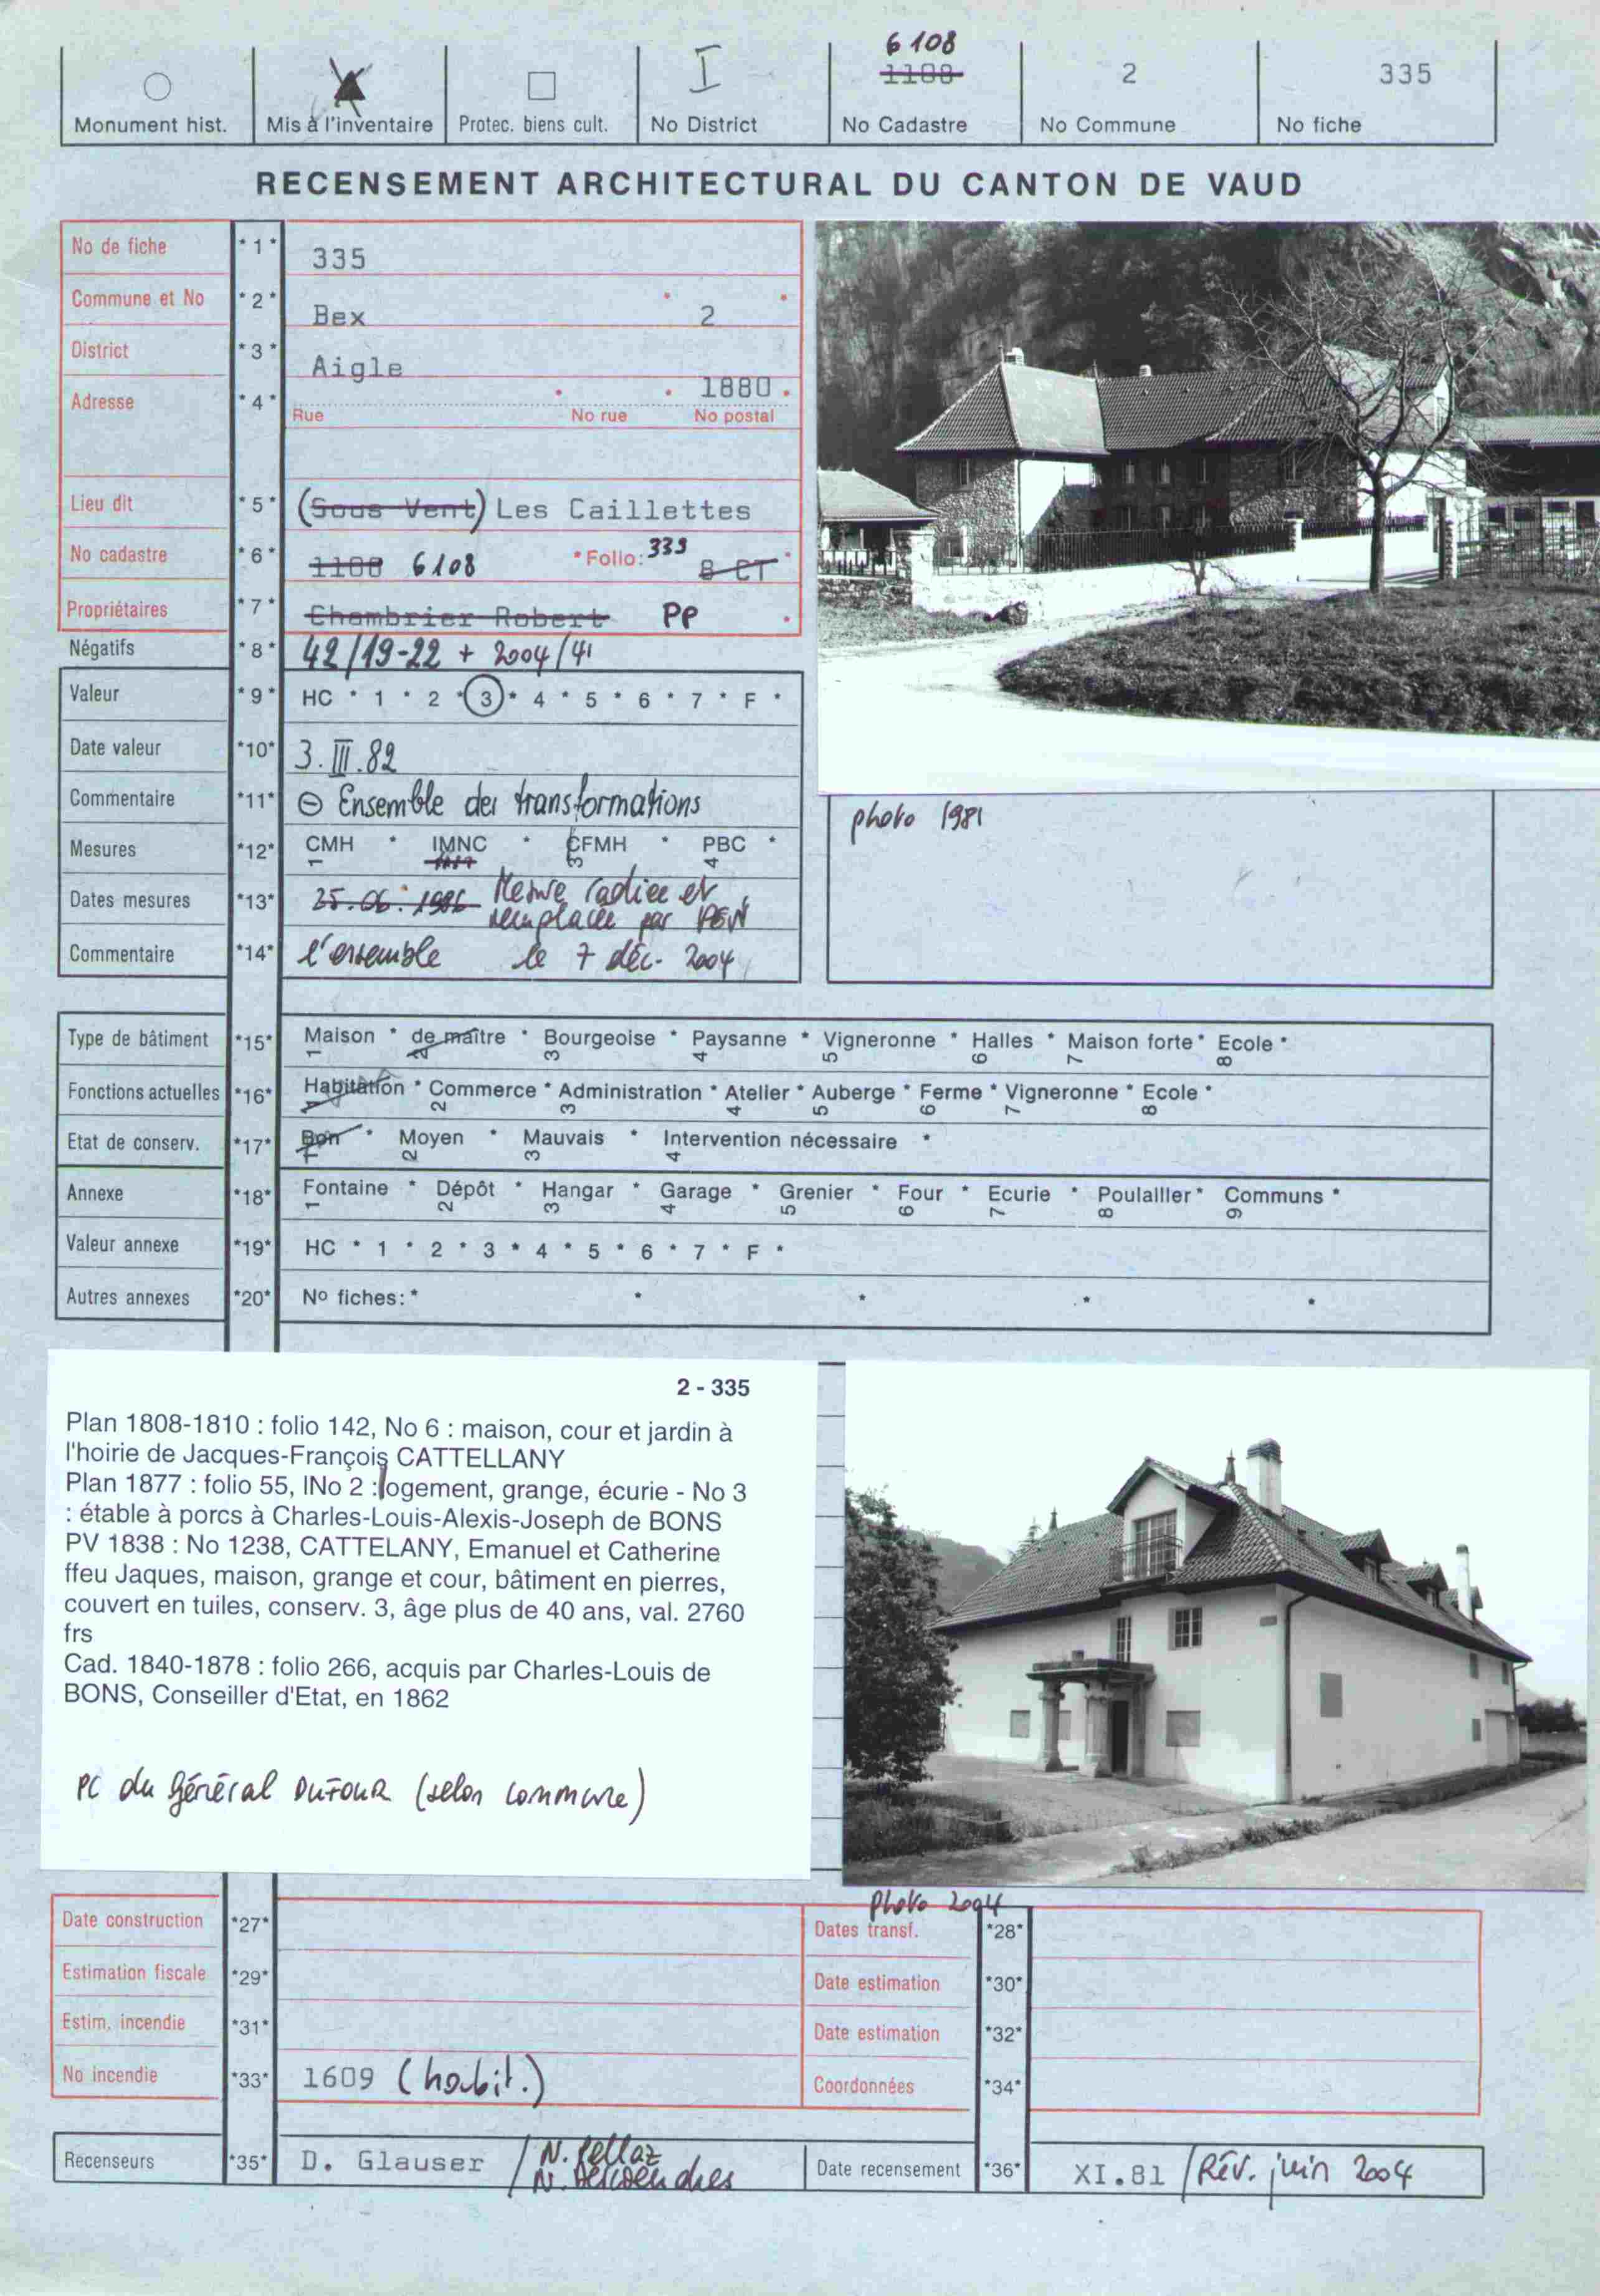 6108
I 1188 2 335
Monument hist. Mis à l'inventaire Protec. biens cult. No District No Cadastre No Commune No fiche
RECENSEMENT ARCHITECTURAL DU CANTON DE VAUD
No de fiche *1* 335
Commune et No *2* Bex 2
District *3* Aigle
Adresse *4* 1880
Rue No rue No postal
Lieu dit *5* (Sous Vent) Les Caillettes
No cadastre *6* 1188 6108 *Folio: 339 8 CT
Propriétaires *7* Chambrier Robert PP
Négatifs *8* 42/19-22 + 2004/41
Valeur *9* HC * 1 * 2 * 3 * 4 * 5 * 6 * 7 * F *
Date valeur *10* 3.III.82
Commentaire *11* ⊖ Ensemble des transformations
photo 1981
Mesures *12* CMH * IMNC * CFMH * PBC *
1 3 4
Dates mesures *13* 25.06.1986 Mesure radiée et
remplacée par
Commentaire *14* l'ensemble le 7 déc. 2004
Type de bâtiment *15* Maison * de maître * Bourgeoise * Paysanne * Vigneronne * Halles * Maison forte * Ecole *
1 2 3 4 5 6 7 8
Fonctions actuelles *16* Habitation * Commerce * Administration * Atelier * Auberge * Ferme * Vigneronne * Ecole *
1 2 3 4 5 6 7 8
Etat de conserv. *17* Bon * Moyen * Mauvais * Intervention nécessaire *
1 2 3 4
Annexe *18* Fontaine * Dépôt * Hangar * Garage * Grenier * Four * Ecurie * Poulailler * Communs *
1 2 3 4 5 6 7 8 9
Valeur annexe *19* HC * 1 * 2 * 3 * 4 * 5 * 6 * 7 * F *
Autres annexes *20* No fiches: * * * * *
2 - 335
Plan 1808-1810 : folio 142, No 6 : maison, cour et jardin à
l'hoirie de Jacques-François CATTELLANY
Plan 1877 : folio 55, INo 2 :logement, grange, écurie - No 3
: étable à porcs à Charles-Louis-Alexis-Joseph de BONS
PV 1838 : No 1238, CATTELANY, Emanuel et Catherine
ffeu Jaques, maison, grange et cour, bâtiment en pierres,
couvert en tuiles, conserv. 3, âge plus de 40 ans, val. 2760
frs
Cad. 1840-1878 : folio 266, acquis par Charles-Louis de
BONS, Conseiller d'Etat, en 1862
PC du Général DUFOUR (selon commune)
photo 2004
Date construction *27* Dates transf. *28*
Estimation fiscale *29* Date estimation *30*
Estim. incendie *31* Date estimation *32*
No incendie *33* 1609 (habit.) Coordonnées *34*
Recenseurs *35* D. Glauser / N. Pellaz Date recensement *36* XI.81 / Rév. juin 2004
N. Descoendres